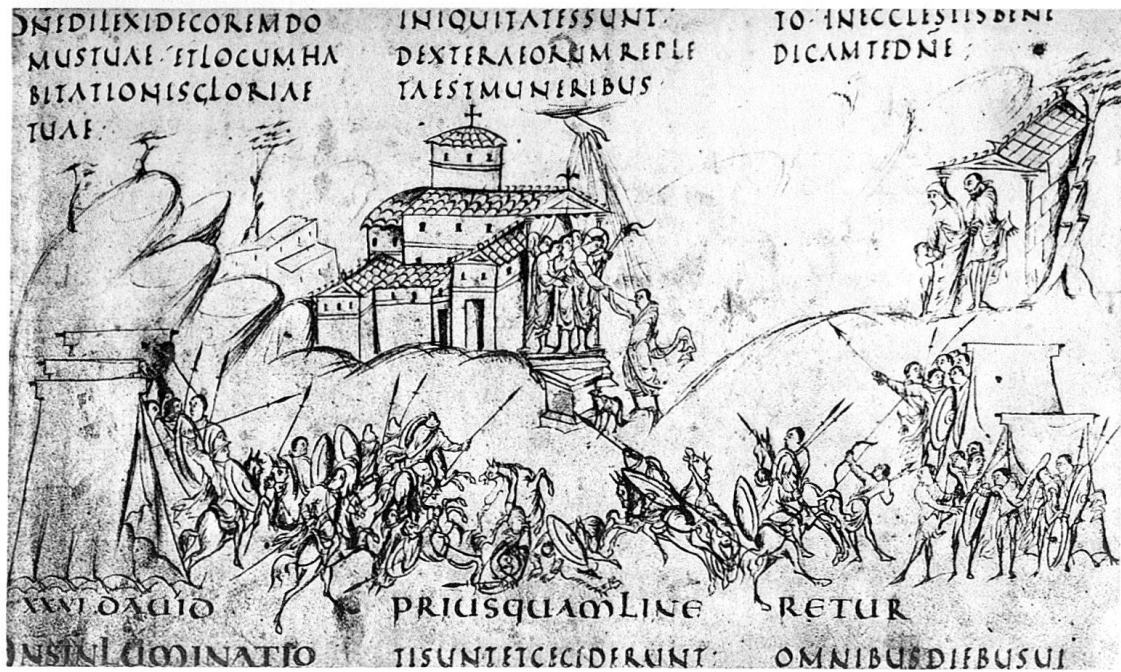 DNEDILEXIDECOREMDO
MUSTUAE·ETLOCUMHA
BITATIONISGLORIAE
TUAE·
INIQUITATESSUNT·
DEXTERAEORUMREPLE
TAESTMUNERIBUS·
TO·INECCLESIISBENE
DICAMTEDNE·
XXVI DAUID PRIUSQUAMLINE RETUR
DNSINLUMINATIO
TISUNTETCECIDERUNT:
OMNIBUSDIEBUSUI